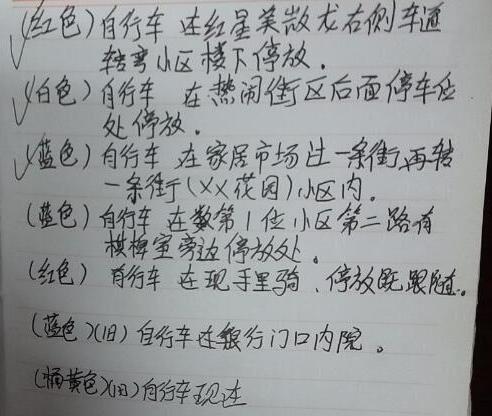 (红色)自行车 在红星美敞龙右侧车通
转弯小区楼下停放.
(白色)自行车 在热闹街区后面停车位
处停放.
(蓝色)自行车 在家居市场过一条街,再转
一条街(XX花园)小区内.
(蓝色)自行车 在数第1位小区第二路有
棋牌室旁边停放处。
(红色) 自行车 在现手里骑、停放既跟随。
(蓝色)(旧)自行车在银行门口内院。
(桶黄色)(旧)自行车现在